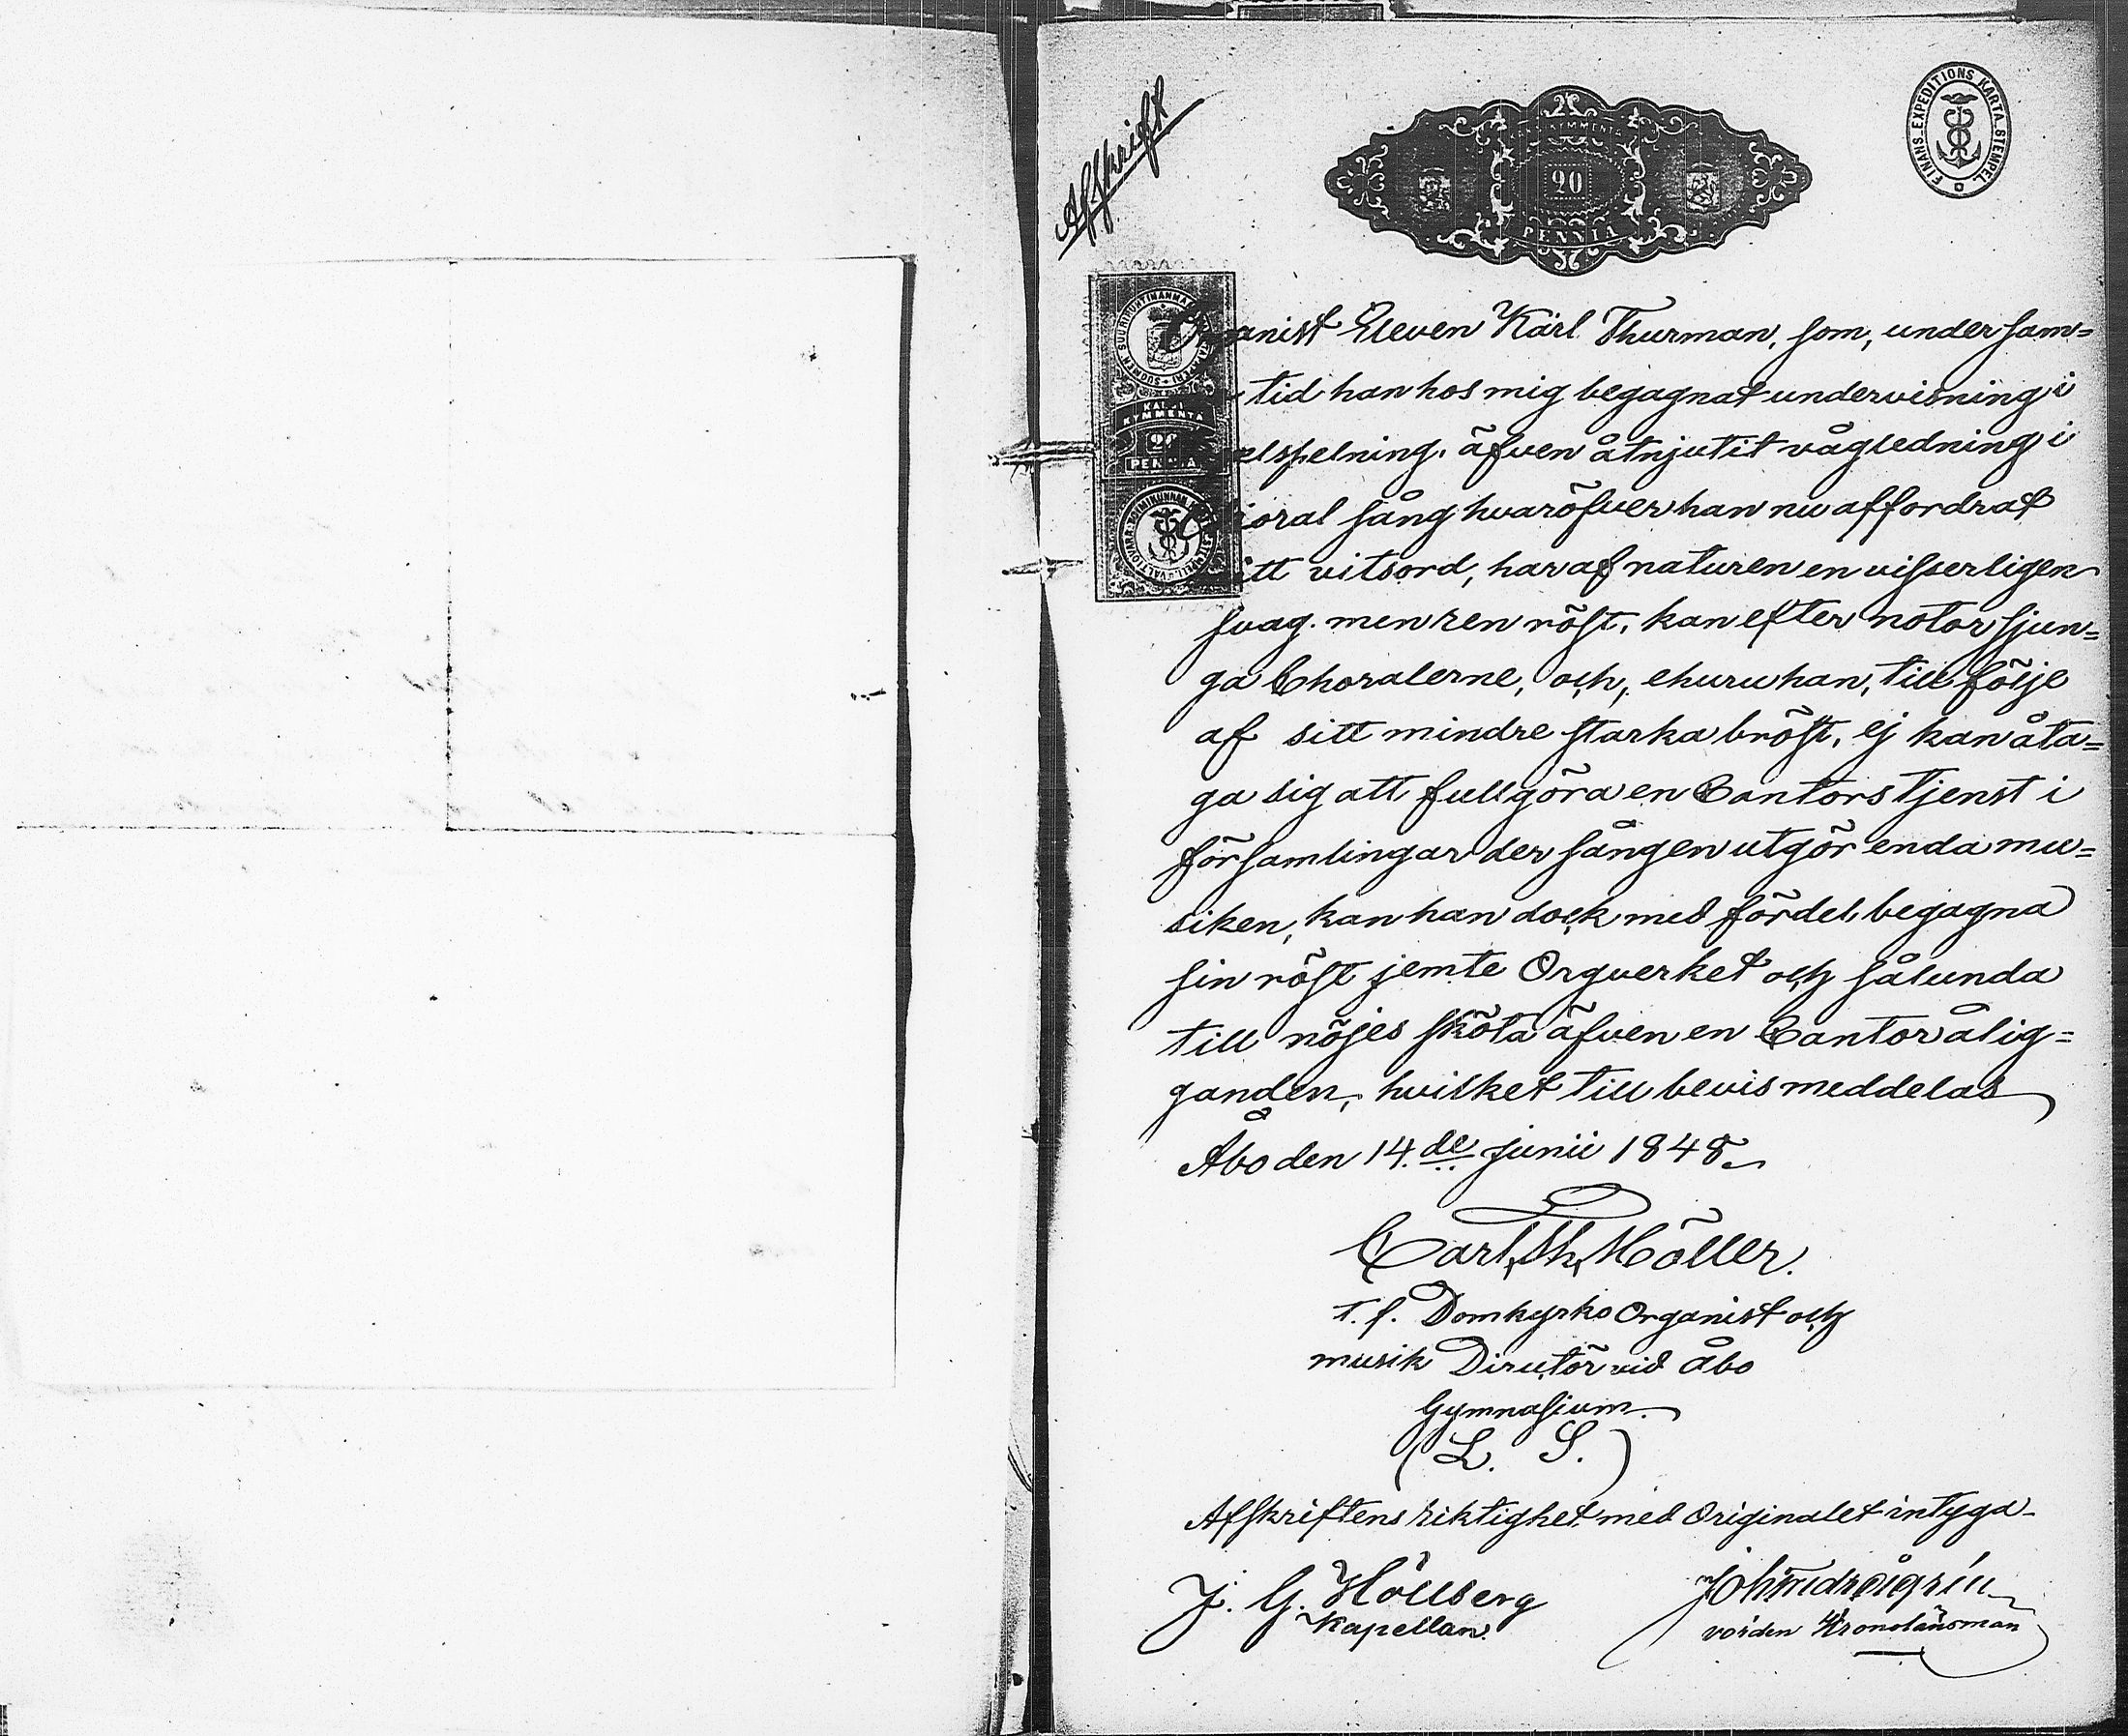 Afskrift
FINANS EXPEDITIONS KARTA STEMPEL
20
PENNIÄ
KYMMENTÄ
20
PENNIÄ
Organist Eleven Karl Thurman, som, under sam=
tid han hos mig begagnat undervisning i
elspelning, äfven åtnjutit vägledning i
Choral sång hvaröfver han nu affordrat
mitt vitsord, har af naturen en visserligen
svag men ren röst, kan efter notor sjun=
ga Choralerne, och, ehuru han, till följe
af sitt mindre starka bröst, ej kan åta=
ga sig att fullgöra en Cantors tjenst i
församlingar der sången utgör enda mu=
siken, kan han dock med fördel begagna
sin röst jemte Orgverket och sålunda
till nöjes sköta äfven en Cantor ålig=
ganden, hvilket till bevis meddelas
Åbo den 14.de junii 1848
Carl Th. Möller.
t. f. Domkyrko Organist och
musik Director vid Åbo
Gymnasium.
(L. S.)
Afskriftens riktighet med Originalet intyga
J. G. Hollberg
Kapellan.
vörden Kronolänsman